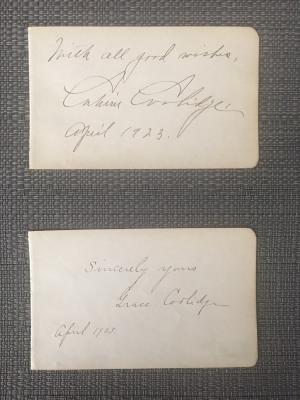 With all good wishes,
Calvin Coolidge
April 1923.
Sincerely yours
Grace Coolidge
April 1923.